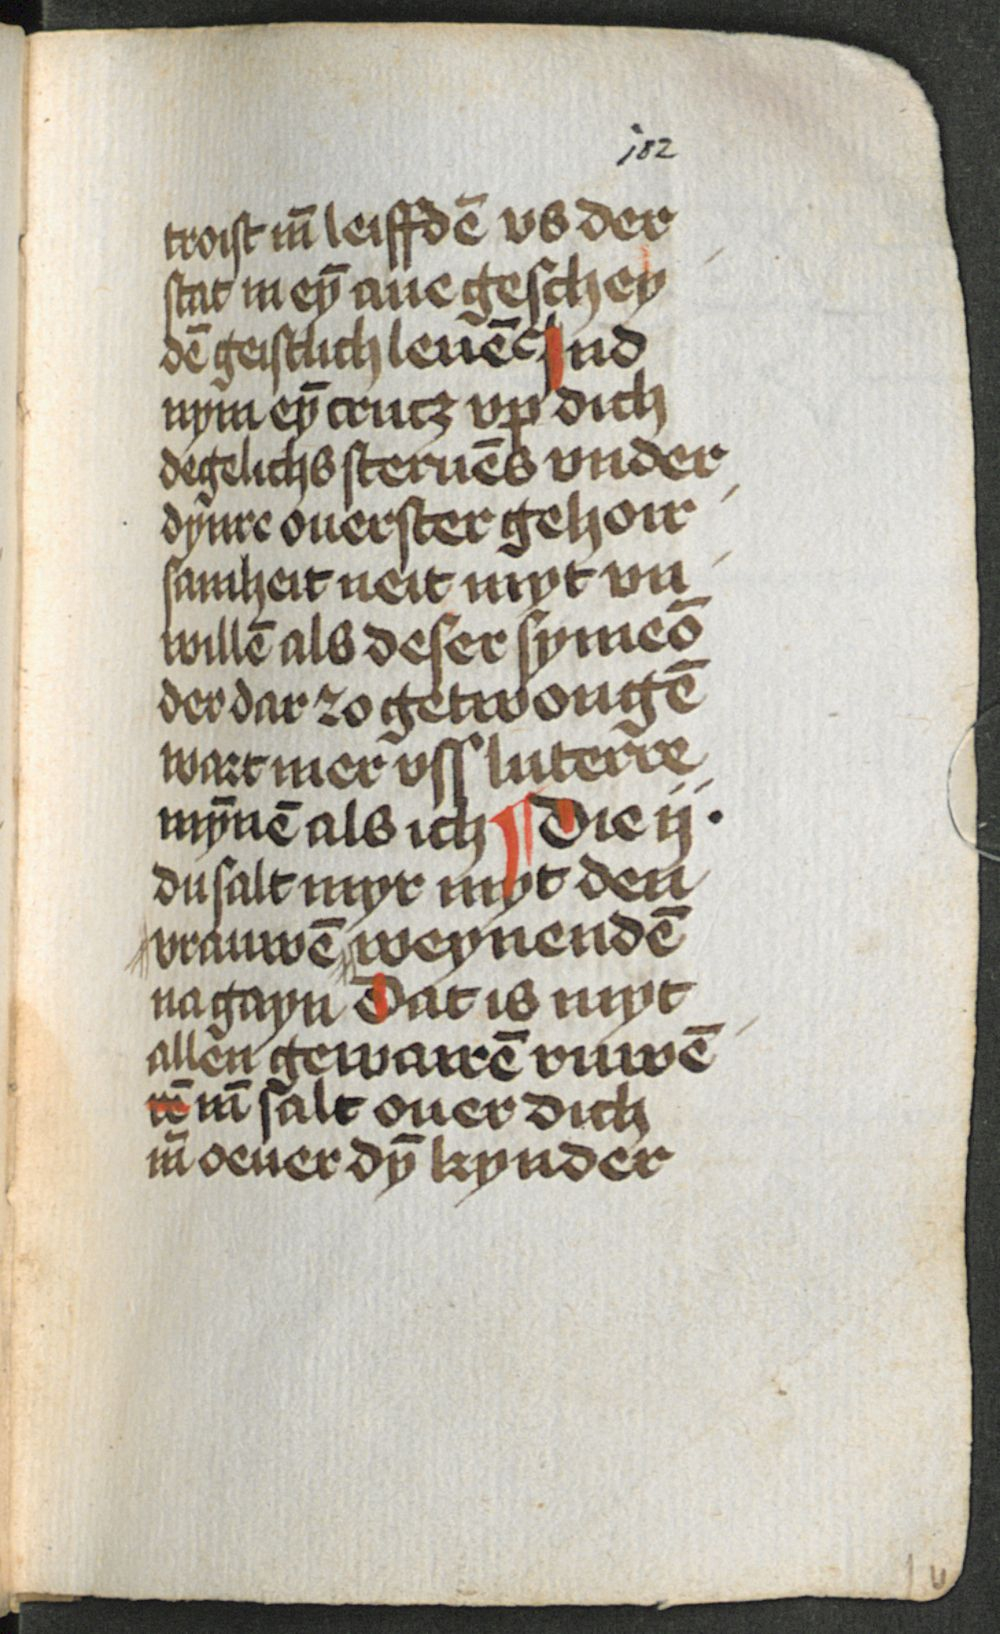 182
troist vñ leiffdē vs der
stat in eȳ aue geschey
dē geistlich leuē Ind
nym eȳ crucz vp dich
degelichs steruēs vnder
dynre ouerster gehoir
samheit neit myt vn
willē als deser symeō
der dar zo getwongē
wart mer vss luterre
mȳnē als ich Die ij.
du salt myr myt den
vrauwē weynendē
na gayn Dat is myt
allen gewarē ruwē
vñ salt ouer dich
vñ oeuer dȳ kynder